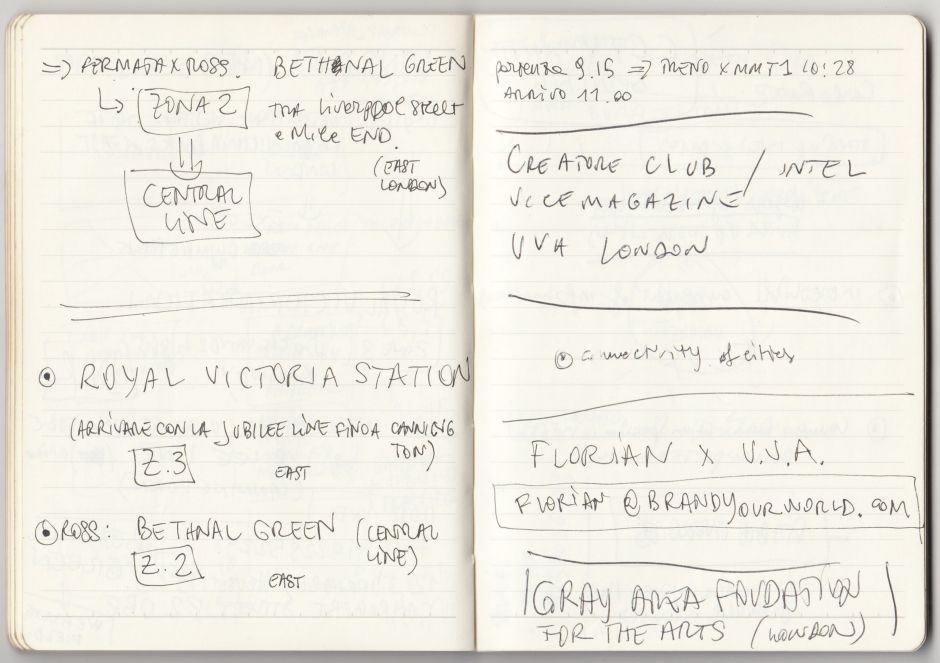 => FERMATA X ROSS. BETHNAL GREEN
↳ ZONA 2 TRA LIVERPOOL STREET
e MILE END.
(EAST
LONDON)
CENTRAL
LINE
ROYAL VICTORIA STATION
(ARRIVARE CON LA JUBILEE LINE FINO A CANNING
TON)
Z.3
EAST
ROSS: BETHNAL GREEN (CENTRAL
LINE)
Z.2
EAST
partenza 9.15 => TRENO X MMT1 10:28
ARRIVO 11.00
CREATURE CLUB / INTEL
VICE MAGAZINE
UVA LONDON
connectivity of cities
FLORIAN X U.V.A.
FLORIAN@BRANDYOURWORLD.COM
GRAY AREA FOUNDATION
FOR THE ARTS (LONDON)